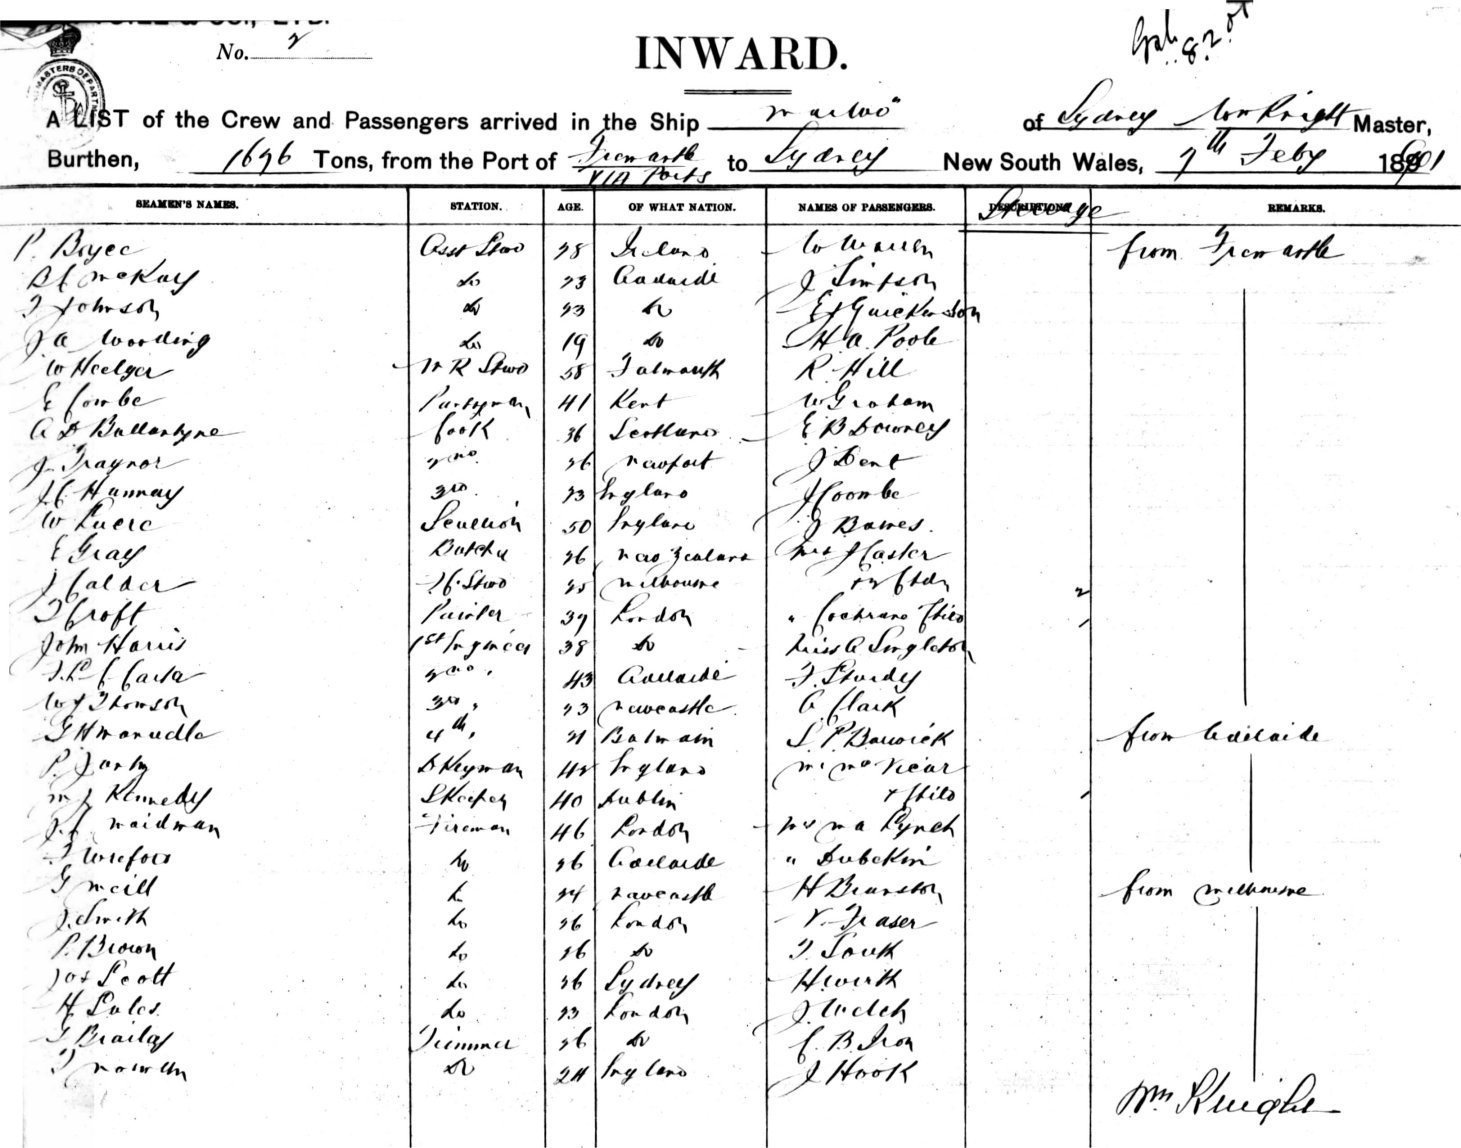 No. 2
INWARD.
A LIST of the Crew and Passengers arrived in the Ship of Sydney Wm Knight Master,
Burthen, 1696 Tons, from the Port of Fremantle to Sydney New South Wales, 7th Feby 1901
VIA Ports
SEAMEN'S NAMES. STATION. AGE. OF WHAT NATION. NAMES OF PASSENGERS. DESCRIPTION Steerage REMARKS.
P. Boyce Asst Stwd 28 Ireland W Warren from Fremantle
McKay do 23 Adelaide J Simpson
T Johnson do 23 do
J A Wooding do 19 do H A Poole
W Heelger Stwd 58 Falmouth R. Hill
E Combe Pantryman 41 Kent W Graham
A D Ballantyne Cook 36 Scotland E B Downey
J Traynor 2nd 26 Newport J Dent
J C Hannay 3rd 23 England J Coombe
W Scullion 50 England J Bawes.
E Gray Butcher 26 New Zealand Mrs J Caster
J Calder Stwd 25 Melbourne 2
T Croft Painter 39 London " Cochrane Child 1
John Harris 1st Engineer 38 do Miss A Singleton
2nd " 43 Adelaide F. Sturdy
W J Thomson 3rd " 23 Newcastle. A Clark
G H Manuelle 4th " 21 Balmain S. P. Barwick from Adelaide
P. D Keyman 42 England
M J Kennedy S Keeper 40 Dublin + Child 1
J. J Maidman Fireman 46 London Mrs M A Lynch
do 26 Adelaide "
G do 24 Newcastle H Branston from Melbourne
J. Smith do 26 London V. Fraser
P. Brown do 26 do
Jos Scott do 26 Sydney H Wirth
H do 23 London J. Welch
G Brailey Trimmer 26 do C. B. Iron
T do 24 England J Hook
Wm Knight